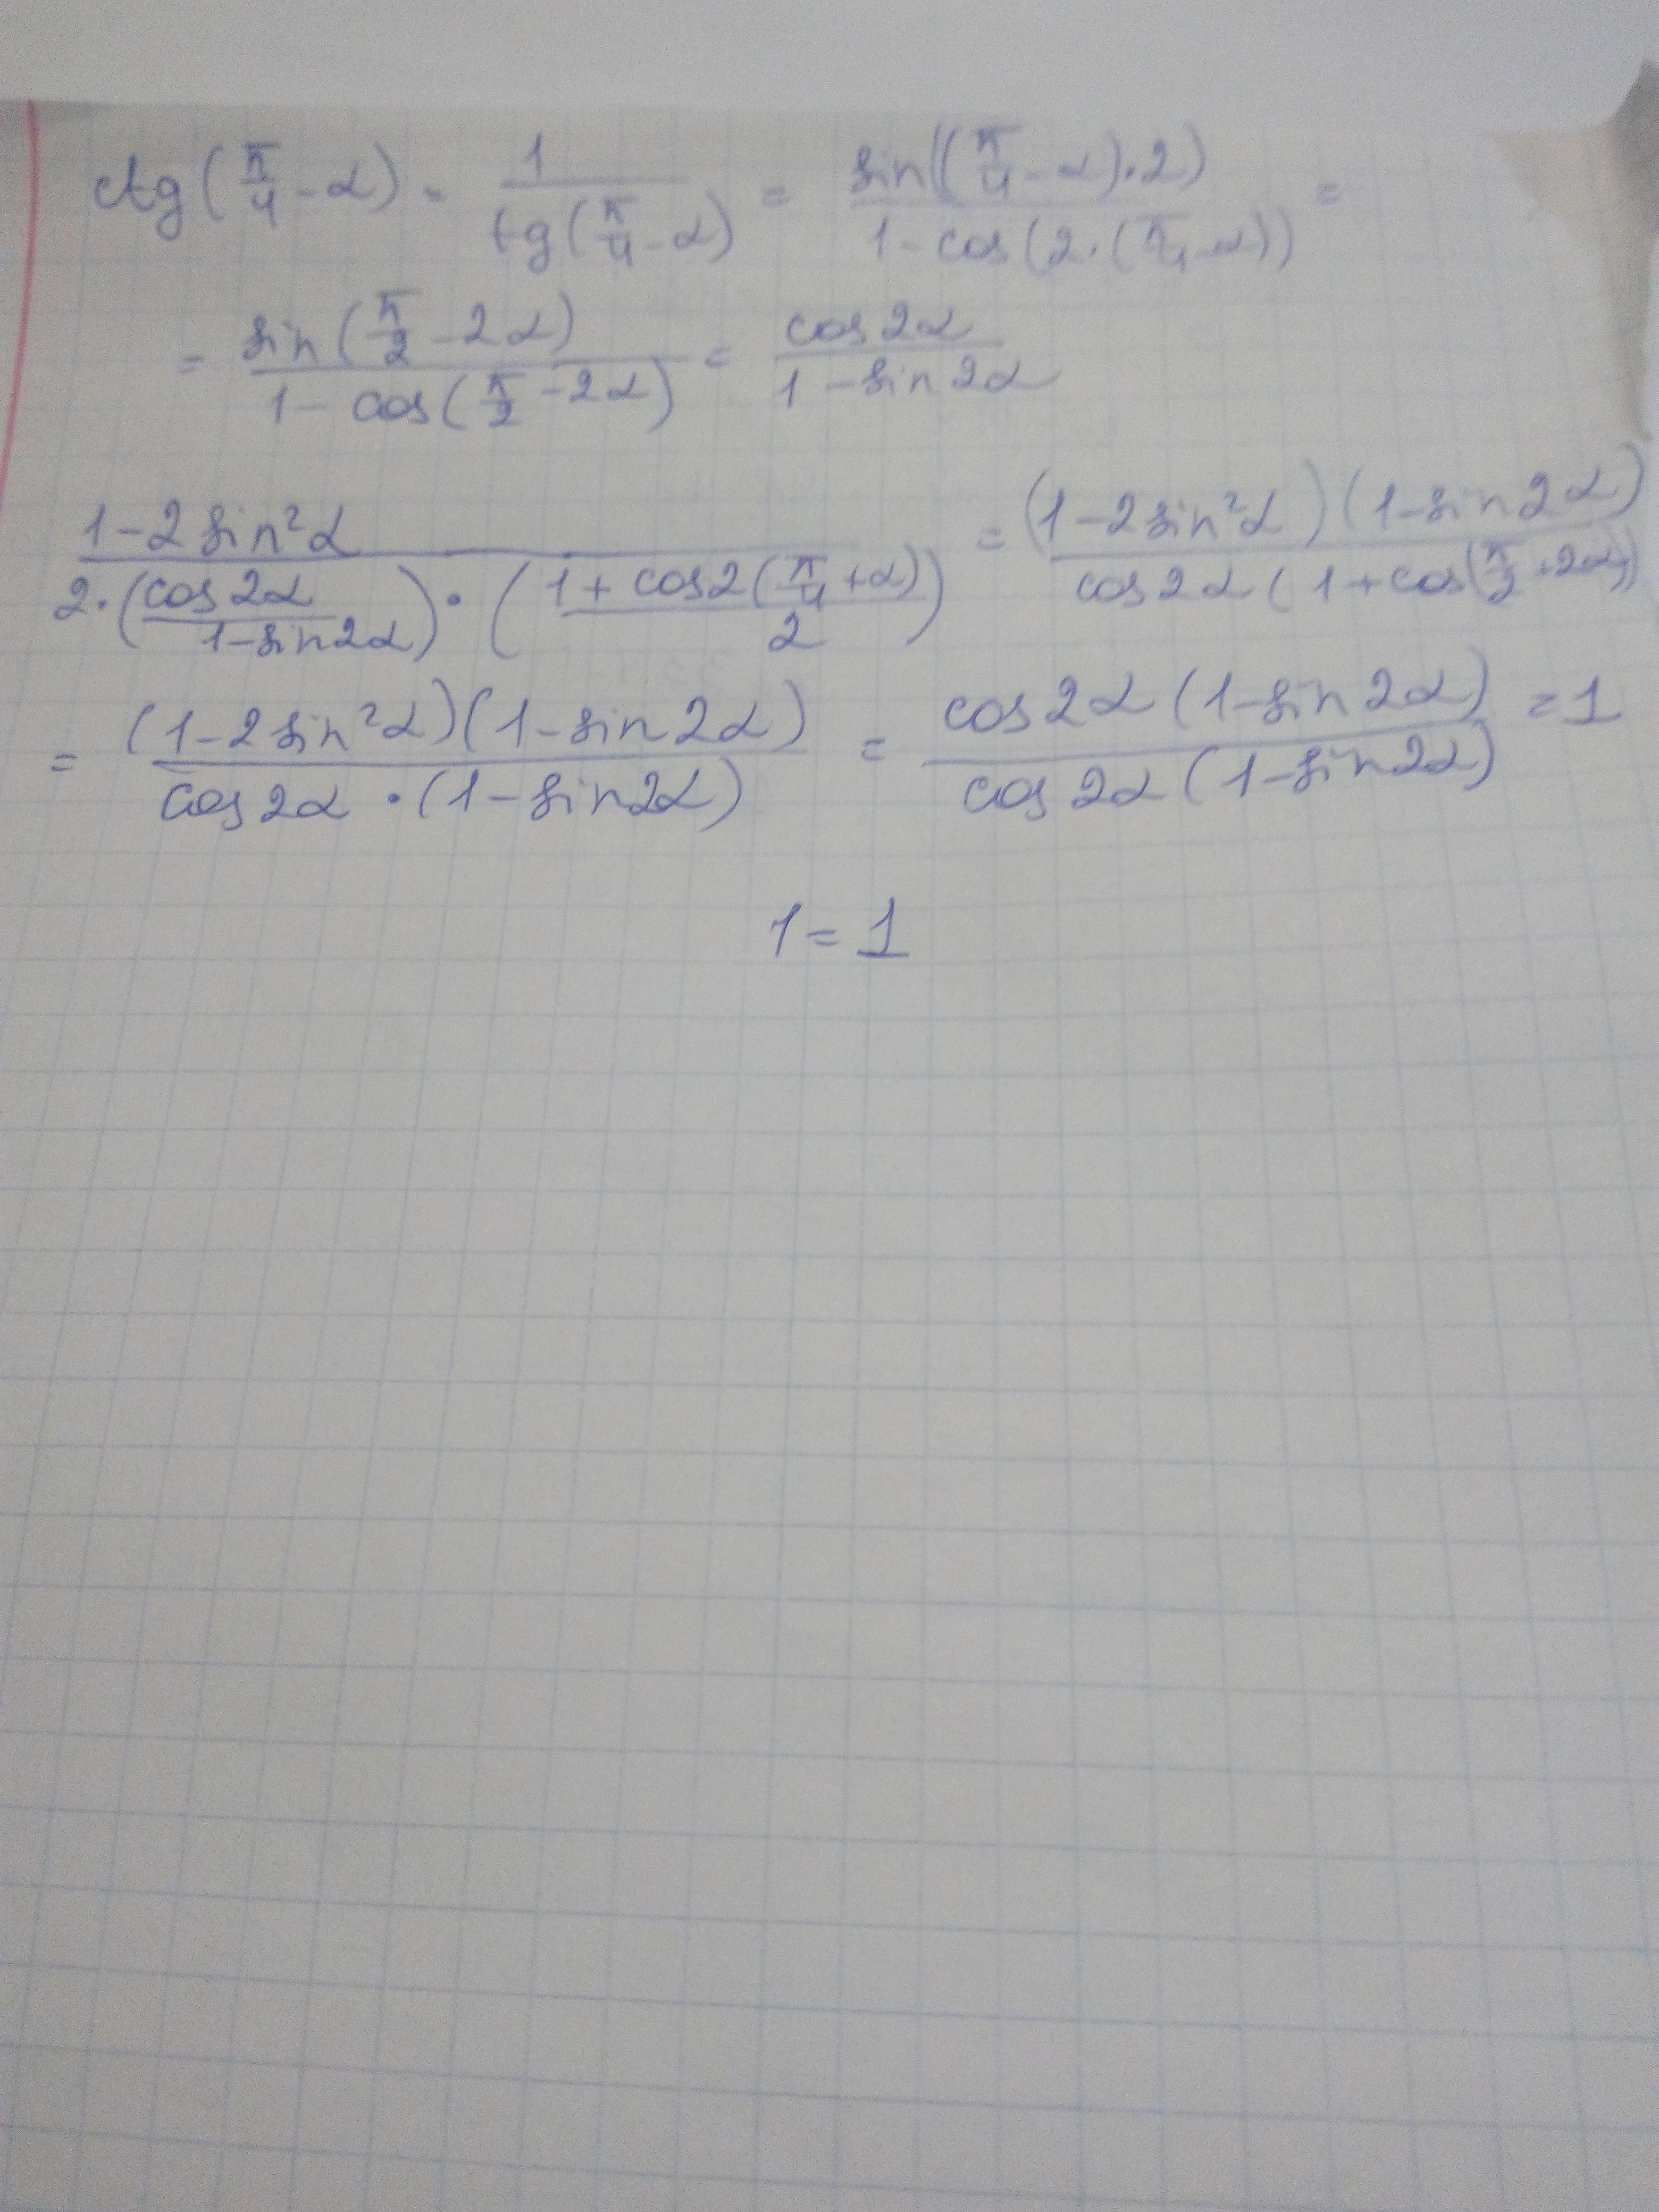 ctg(π/4 - α) = 1/tg(π/4 - α) = sin((π/4 - α)·2)/1 - cos(2·(π/4 - α)) =
= sin(π/2 - 2α)/1 - cos(π/2 - 2α) = cos2α/1 - sin2α
1 - 2sin²α/2·(cos2α/1 - sin2α)·(1 + cos2(π/4 + α)/2) = (1 - 2sin²α)(1 - sin2α)/cos2α(1 + cos(π/2 + 2α))
= (1 - 2sin²α)(1 - sin2α)/cos2α·(1 - sin2α) = cos2α(1 - sin2α)/cos2α(1 - sin2α) = 1
1 = 1